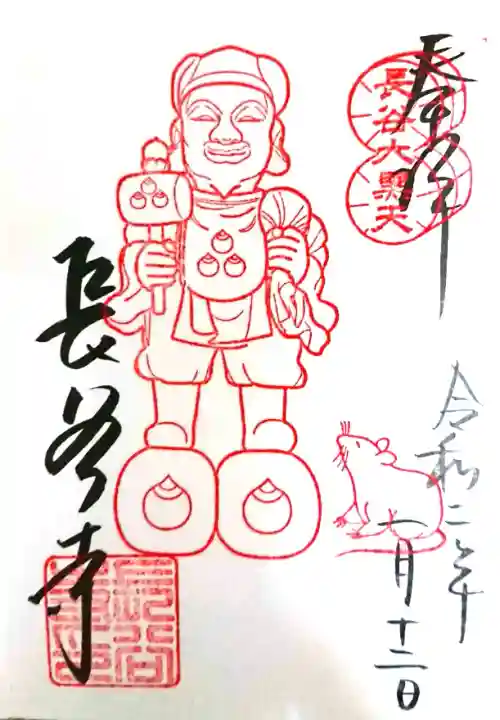 奉拝
長谷大黒天
令和二年
一月十二日
長谷寺